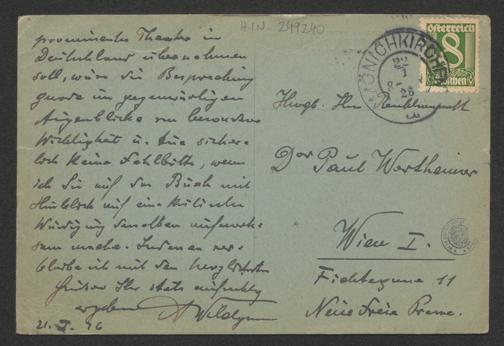 H.I.N. 249240
prominentes Theater in
Deutschland übernehmen
soll, wäre die Besprechung
gerade im gegenwärtigen
Augenblicke von besonderer
Wichtigkeit u. Sie sicher-
lich keine Fehlbitte, wenn
ich Sie auf das Buch mit
Hinblick auf eine kritische
Würdigung desselben aufmerk-
sam mache. Indem ich ver-
bleibe ich mit den herzlichsten
Grüßen Ihr stets aufrichtig
ergebener Wildgans
21. I. 26
österreich
8
Groschen
MÖNICHKIRCHEN
22
I
26
Hwgb. Hrn
Dor Paul Wertheimer
Wien I.
Fichtegasse 11
Neue Freie Presse.